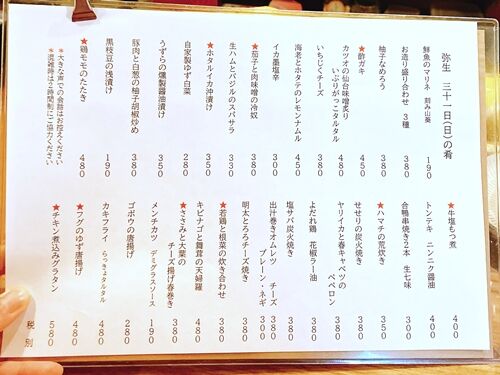 弥生 三十一日(日)の肴
鮮魚のマリネ 刻み山葵 190
お造り盛り合わせ 3種 450
柚子なめろう 380
★酢ガキ 190
カツオの仙台味噌炙り
いぶりがっこタルタル 480
いちじくチーズ 380
海老とホタテのレモンナムル 450
イカ墨塩辛 300
★茄子と肉味噌の冷奴 300
生ハムとバジルのスパサラ 330
★ホタルイカ沖漬け 350
自家製ゆず白菜 280
うずらの燻製醤油漬け 350
豚肉と白葱の柚子胡椒炒め 380
黒枝豆の浅漬け 380
★鶏モモのたたき 480
＊大きな声での会話はお控えください
＊混雑時は2時間制にご協力ください
★牛塩もつ煮 400
トンテキ ニンニク醤油 400
合鴨串焼き2本 生七味 300
★ハマチの荒炊き 350
せせりの炭火焼き 380
ヤリイカと春キャベツの
ペペロン 380
よだれ鶏 花椒ラー油 380
塩サバ炭火焼き 380
出汁巻きオムレツ チーズ 380
プレーン・ネギ 300
明太とろろチーズ焼き 380
★若鶏と根菜の炊き合わせ 380
キビナゴと舞茸の天婦羅 480
★ささみと大葉の
チーズ揚げ春巻き 380
メンチカツ デミグラスソース 190
ゴボウの唐揚げ 280
カキフライ らっきょタルタル 480
★フグのゆず唐揚げ 480
★チキン煮込みグラタン 580
税別